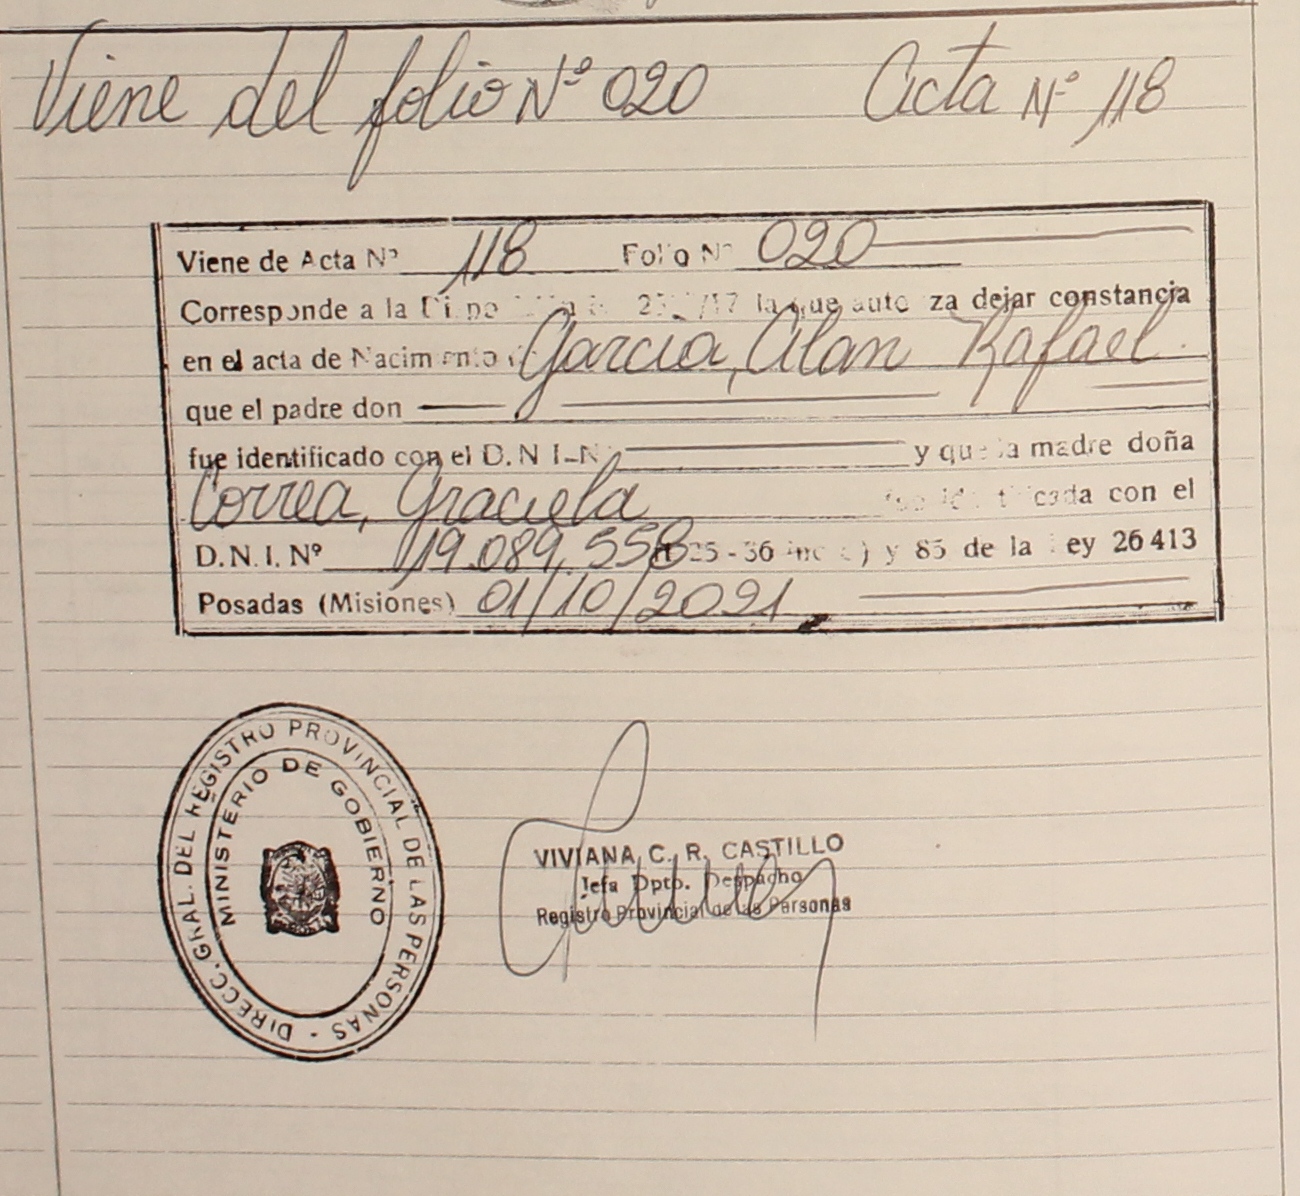 Viene del folio Nº 020 Acta Nº 118
Viene de Acta Nº 118 Folio Nº 020
Corresponde a la la que autoriza dejar constancia
en el acta de Nacimiento Garcia, Alan Rafael.
que el padre don
fue identificado con el D.N.I-Nº y que la madre doña
Correa, Graciela identificada con el
D.N.I. Nº 19.089.558 25-36 inc ) y 85 de la Ley 26413
Posadas (Misiones) 01/10/2021
DIRECC. GRAL. DEL REGISTRO PROVINCIAL DE LAS PERSONAS -
MINISTERIO DE GOBIERNO
VIVIANA C. R. CASTILLO
Jefa Dpto. Despacho
Registro Provincial de las Personas